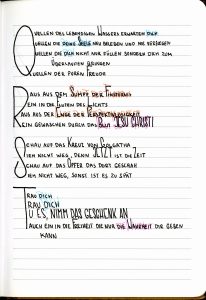 QUELLEN DES LEBENDIGEN WASSERS ERWARTEN DICH
QUELLEN DIE DEINE SEELE NEU BELEBEN UND NIE VERSIEGEN
QUELLEN DIE DICH NICHT NUR FÜLLEN SONDERN DICH ZUM
ÜBERLAUFEN BRINGEN
QUELLEN DER PUREN FREUDE
RAUS AUS DEM SUMPF DER FINSTERNIS
REIN IN DIE FLUTEN DES LICHTS
RAUS AUS DER ENGE DER PERSPEKTIVLOSIGKEIT
REIN GEWASCHEN DURCH DAS BLUT JESU CHRISTI
SCHAU AUF DAS KREUZ VON GOLGATHA
SIEH NICHT WEG, DENN JETZT IST DIE ZEIT
SCHAU AUF DAS OPFER DAS DORT GESCHAH
SIEH NICHT WEG, SONST IST ES ZU SPÄT
TRAU DICH
TRAU DICH
TU ES, NIMM DAS GESCHENK AN
TAUCH EIN IN DIE FREIHEIT DIE NUR DIE WAHRHEIT DIR GEBEN
KANN